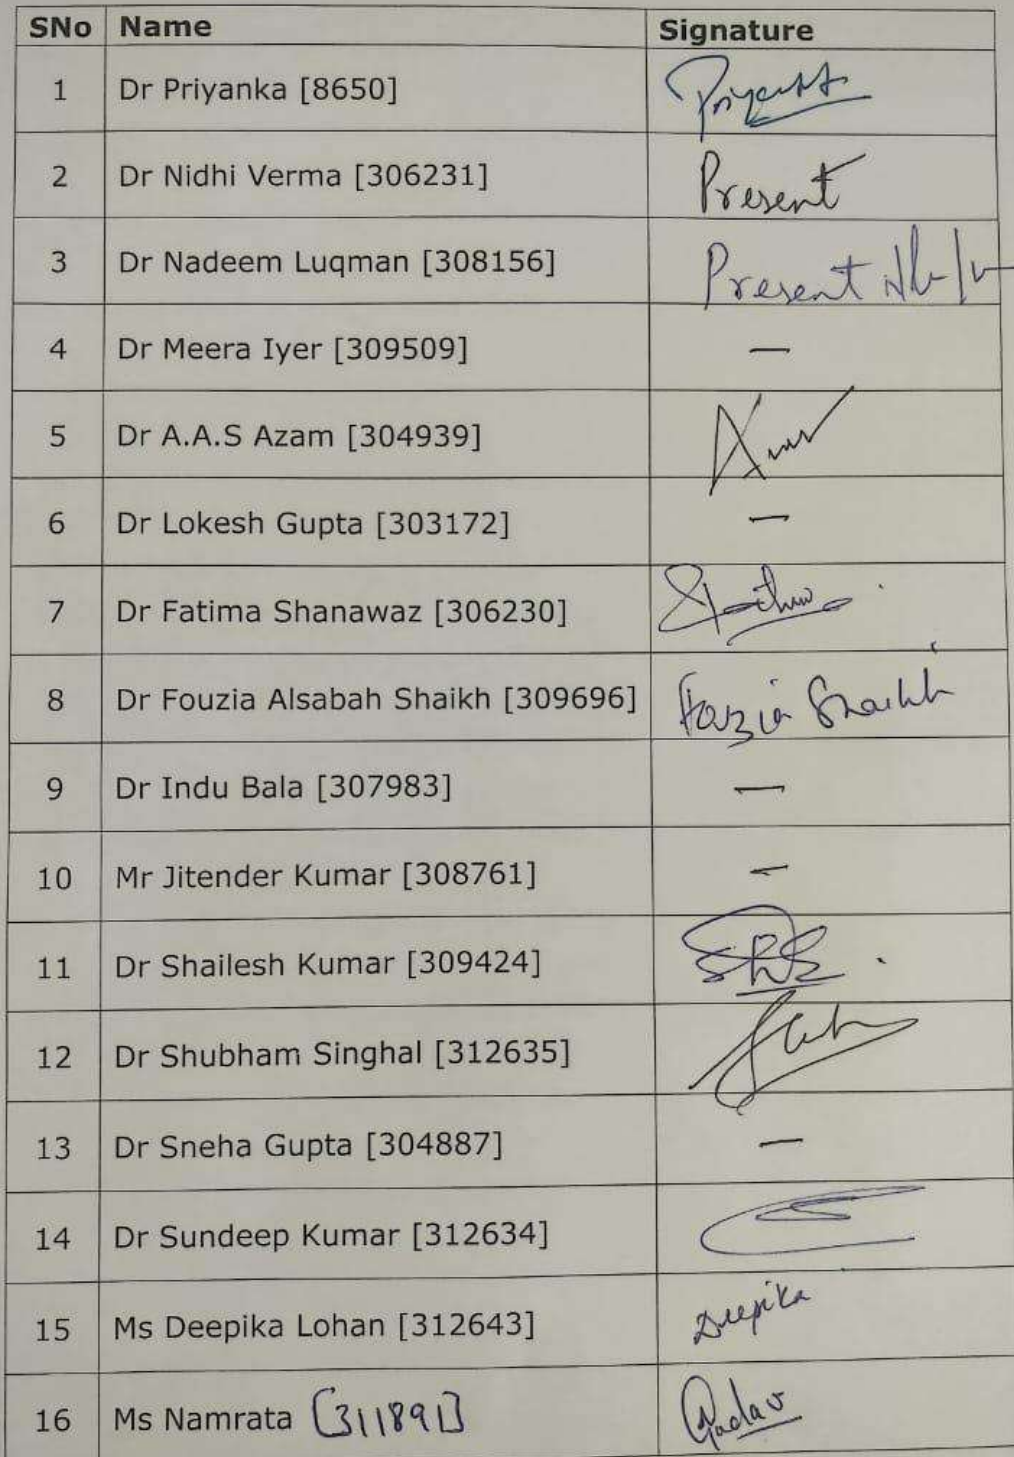 SNo Name Signature
1 Dr Priyanka [8650] Priyanka
2 Dr Nidhi Verma [306231] Present
3 Dr Nadeem Luqman [308156] Present
4 Dr Meera Iyer [309509] —
5 Dr A.A.S Azam [304939]
6 Dr Lokesh Gupta [303172] —
7 Dr Fatima Shanawaz [306230]
8 Dr Fouzia Alsabah Shaikh [309696] Fouzia Shaikh
9 Dr Indu Bala [307983] —
10 Mr Jitender Kumar [308761] —
11 Dr Shailesh Kumar [309424]
12 Dr Shubham Singhal [312635]
13 Dr Sneha Gupta [304887] —
14 Dr Sundeep Kumar [312634]
15 Ms Deepika Lohan [312643] Deepika
16 Ms Namrata [311891]